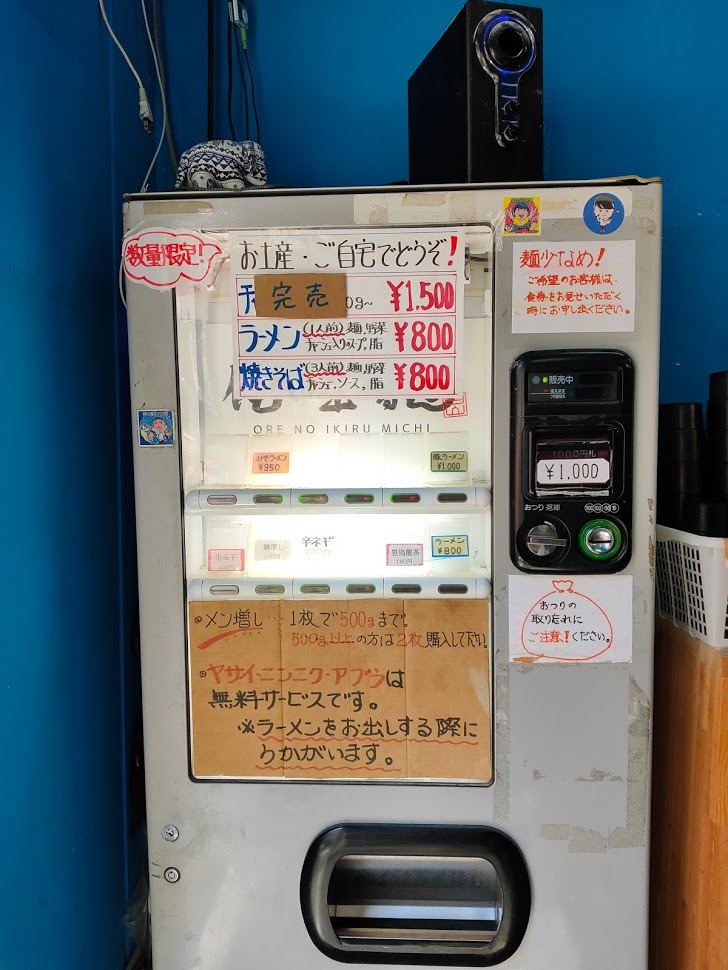 数量限定!
お土産・ご自宅でどうぞ!
チャ 完売 0g~ ¥1.500
ラーメン (1人前) 麺、野菜 チャーシュー入りスープ、脂 ¥800
焼きそば (3人前) 麺、野菜 チャーシュー、ソース、脂 ¥800
ORE NO IKIRU MICHI
みそラーメン
¥950
豚ラーメン
¥1,000
生玉子
100円
麺増し
100円
辛ネギ
黒烏龍茶
180円
ラーメン
¥800
◎メン増し… 1枚で500gまで。
500g以上の方は2枚購入して下さい。
◎ヤサイ・ニンニク・アブラは
無料サービスです。
※ラーメンをお出しする際に
うかがいます。
麺少なめ!
ご希望のお客様は、
食券をお見せいただく
時にお申し出ください。
販売中
1000円札
¥1,000
おつり 返却
500 100 50 10
おつりの
取り忘れに
ご注意!ください。